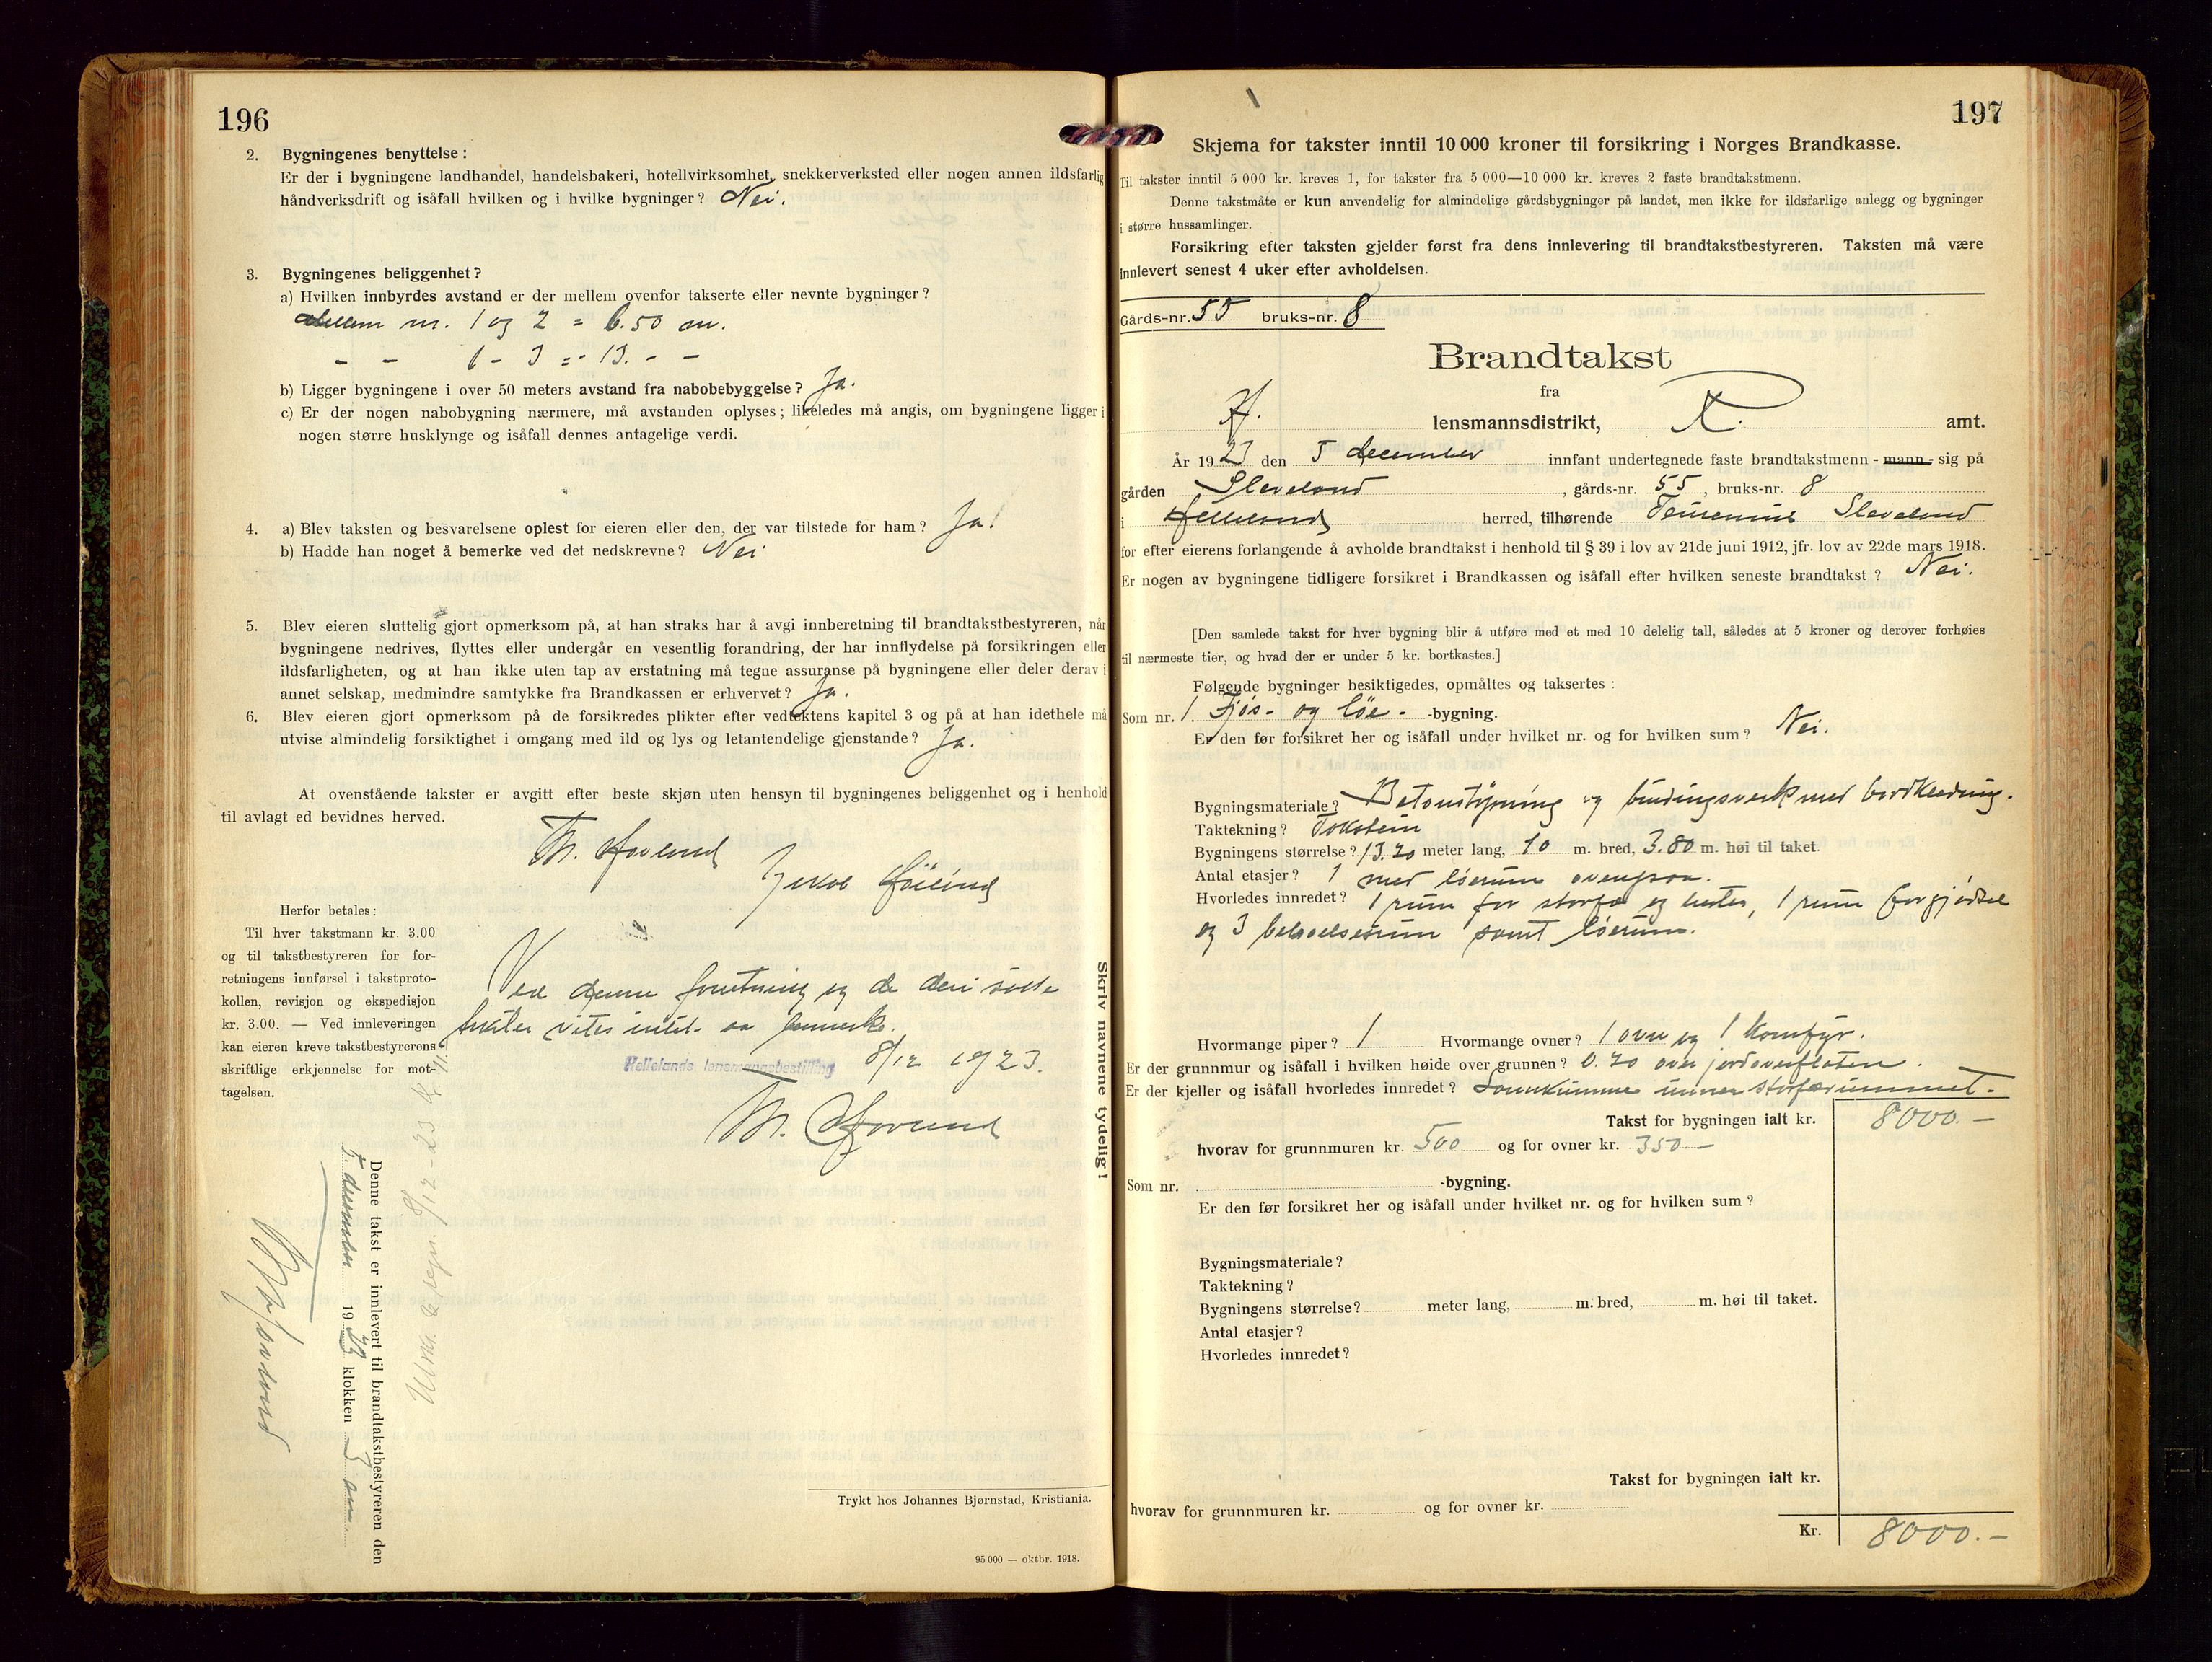 196
2. Bygningenes benyttelse:
Er der i bygningene landhandel, handelsbakeri, hotellvirksomhet, snekkerverksted eller nogen annen ildsfarlig
håndverksdrift og isåfall hvilken og i hvilke bygninger? Nei.
3. Bygningenes beliggenhet?
a) Hvilken innbyrdes avstand er der mellem ovenfor takserte eller nevnte bygninger?
Mellem nr. 1 og 2 = 6.50 m.
- - 1 - 3 = 13. - -
b) Ligger bygningene i over 50 meters avstand fra nabobebyggelse? Ja.
c) Er der nogen nabobygning nærmere, må avstanden oplyses; likeledes må angis, om bygningene ligger i
nogen større husklynge og isåfall dennes antagelige verdi.
4. a) Blev taksten og besvarelsene oplest for eieren eller den, der var tilstede for ham? Ja.
b) Hadde han noget å bemerke ved det nedskrevne? Nei
5. Blev eieren sluttelig gjort opmerksom på, at han straks har å avgi innberetning til brandtakstbestyreren, når
bygningene nedrives, flyttes eller undergår en vesentlig forandring, der har innflydelse på forsikringen eller
ildsfarligheten, og at han ikke uten tap av erstatning må tegne assuranse på bygningene eller deler derav i
annet selskap, medmindre samtykke fra Brandkassen er erhvervet? Ja.
6. Blev eieren gjort opmerksom på de forsikredes plikter efter vedtektens kapitel 3 og på at han idethele må
utvise almindelig forsiktighet i omgang med ild og lys og letantendelige gjenstande? Ja.
At ovenstående takster er avgitt efter beste skjøn uten hensyn til bygningenes beliggenhet og i henhold
til avlagt ed bevidnes herved.
Th. Hovland
Herfor betales:
Til hver takstmann kr. 3.00
og til takstbestyreren for for-
retningens innførsel i takstproto-
kollen, revisjon og ekspedisjon
kr. 3.00. — Ved innleveringen
kan eieren kreve takstbestyrerens
skriftlige erkjennelse for mot-
tagelsen.
Ved denne forretning og de deri satte
takster vites intet aa bemerke.
Hellelands lensmannsbestilling 8/12 1923.
Th. Hovland
Denne takst er innlevert til brandtakstbestyreren den
5. december 1923 klokken 5 em.
Th. Hovland
Skriv navnene tydelig!
Trykt hos Johannes Bjørnstad, Kristiania.
95 000 — oktbr. 1918.
197
Skjema for takster inntil 10 000 kroner til forsikring i Norges Brandkasse.
Til takster inntil 5 000 kr. kreves 1, for takster fra 5 000—10 000 kr. kreves 2 faste brandtakstmenn.
Denne takstmåte er kun anvendelig for almindelige gårdsbygninger på landet, men ikke for ildsfarlige anlegg og bygninger
i større hussamlinger.
Forsikring efter taksten gjelder først fra dens innlevering til brandtakstbestyreren. Taksten må være
innlevert senest 4 uker efter avholdelsen.
Gårds-nr. 55 bruks-nr. 8
Brandtakst
fra
H. lensmannsdistrikt, R. amt.
År 1923 den 5 december innfant undertegnede faste brandtakstmenn - mann - sig på
gården Sleveland, gårds-nr. 55, bruks-nr. 8
i Hellelands herred, tilhørende Sleveland
for efter eierens forlangende å avholde brandtakst i henhold til § 39 i lov av 21de juni 1912, jfr. lov av 22de mars 1918.
Er nogen av bygningene tidligere forsikret i Brandkassen og isåfall efter hvilken seneste brandtakst? Nei.
[Den samlede takst for hver bygning blir å utføre med et med 10 delelig tall, således at 5 kroner og derover forhøies
til nærmeste tier, og hvad der er under 5 kr. bortkastes.]
Følgende bygninger besiktigedes, opmåltes og taksertes:
Som nr. 1. Fjøs- og løe- -bygning.
Er den før forsikret her og isåfall under hvilket nr. og for hvilken sum? Nei.
Bygningsmateriale? Betonstøpning og bindingsverk med bordklædning.
Taktekning? Takstein
Bygningens størrelse? 13.20 meter lang, 10 m. bred, 3.80 m. høi til taket.
Antal etasjer? 1 med løerum ovenpaa.
Hvorledes innredet? 1 rum for storfæ og hester, 1 rum for gjødsel
og 3 belgvelsesrum samt løerum.
Hvormange piper? 1 Hvormange ovner? 1 ovn og 1 komfyr.
Er der grunnmur og isåfall i hvilken høide over grunnen? 0.20 over jordoverflaten.
Er der kjeller og isåfall hvorledes innredet? Landkumme under storfærummet.
Takst for bygningen ialt kr. 8000.-
hvorav for grunnmuren kr. 500 og for ovner kr. 350 -
Som nr. -bygning.
Er den før forsikret her og isåfall under hvilket nr. og for hvilken sum?
Bygningsmateriale?
Taktekning?
Bygningens størrelse? meter lang, m. bred, m. høi til taket.
Antal etasjer?
Hvorledes innredet?
Takst for bygningen ialt kr.
hvorav for grunnmuren kr. og for ovner kr.
Kr. 8000.-